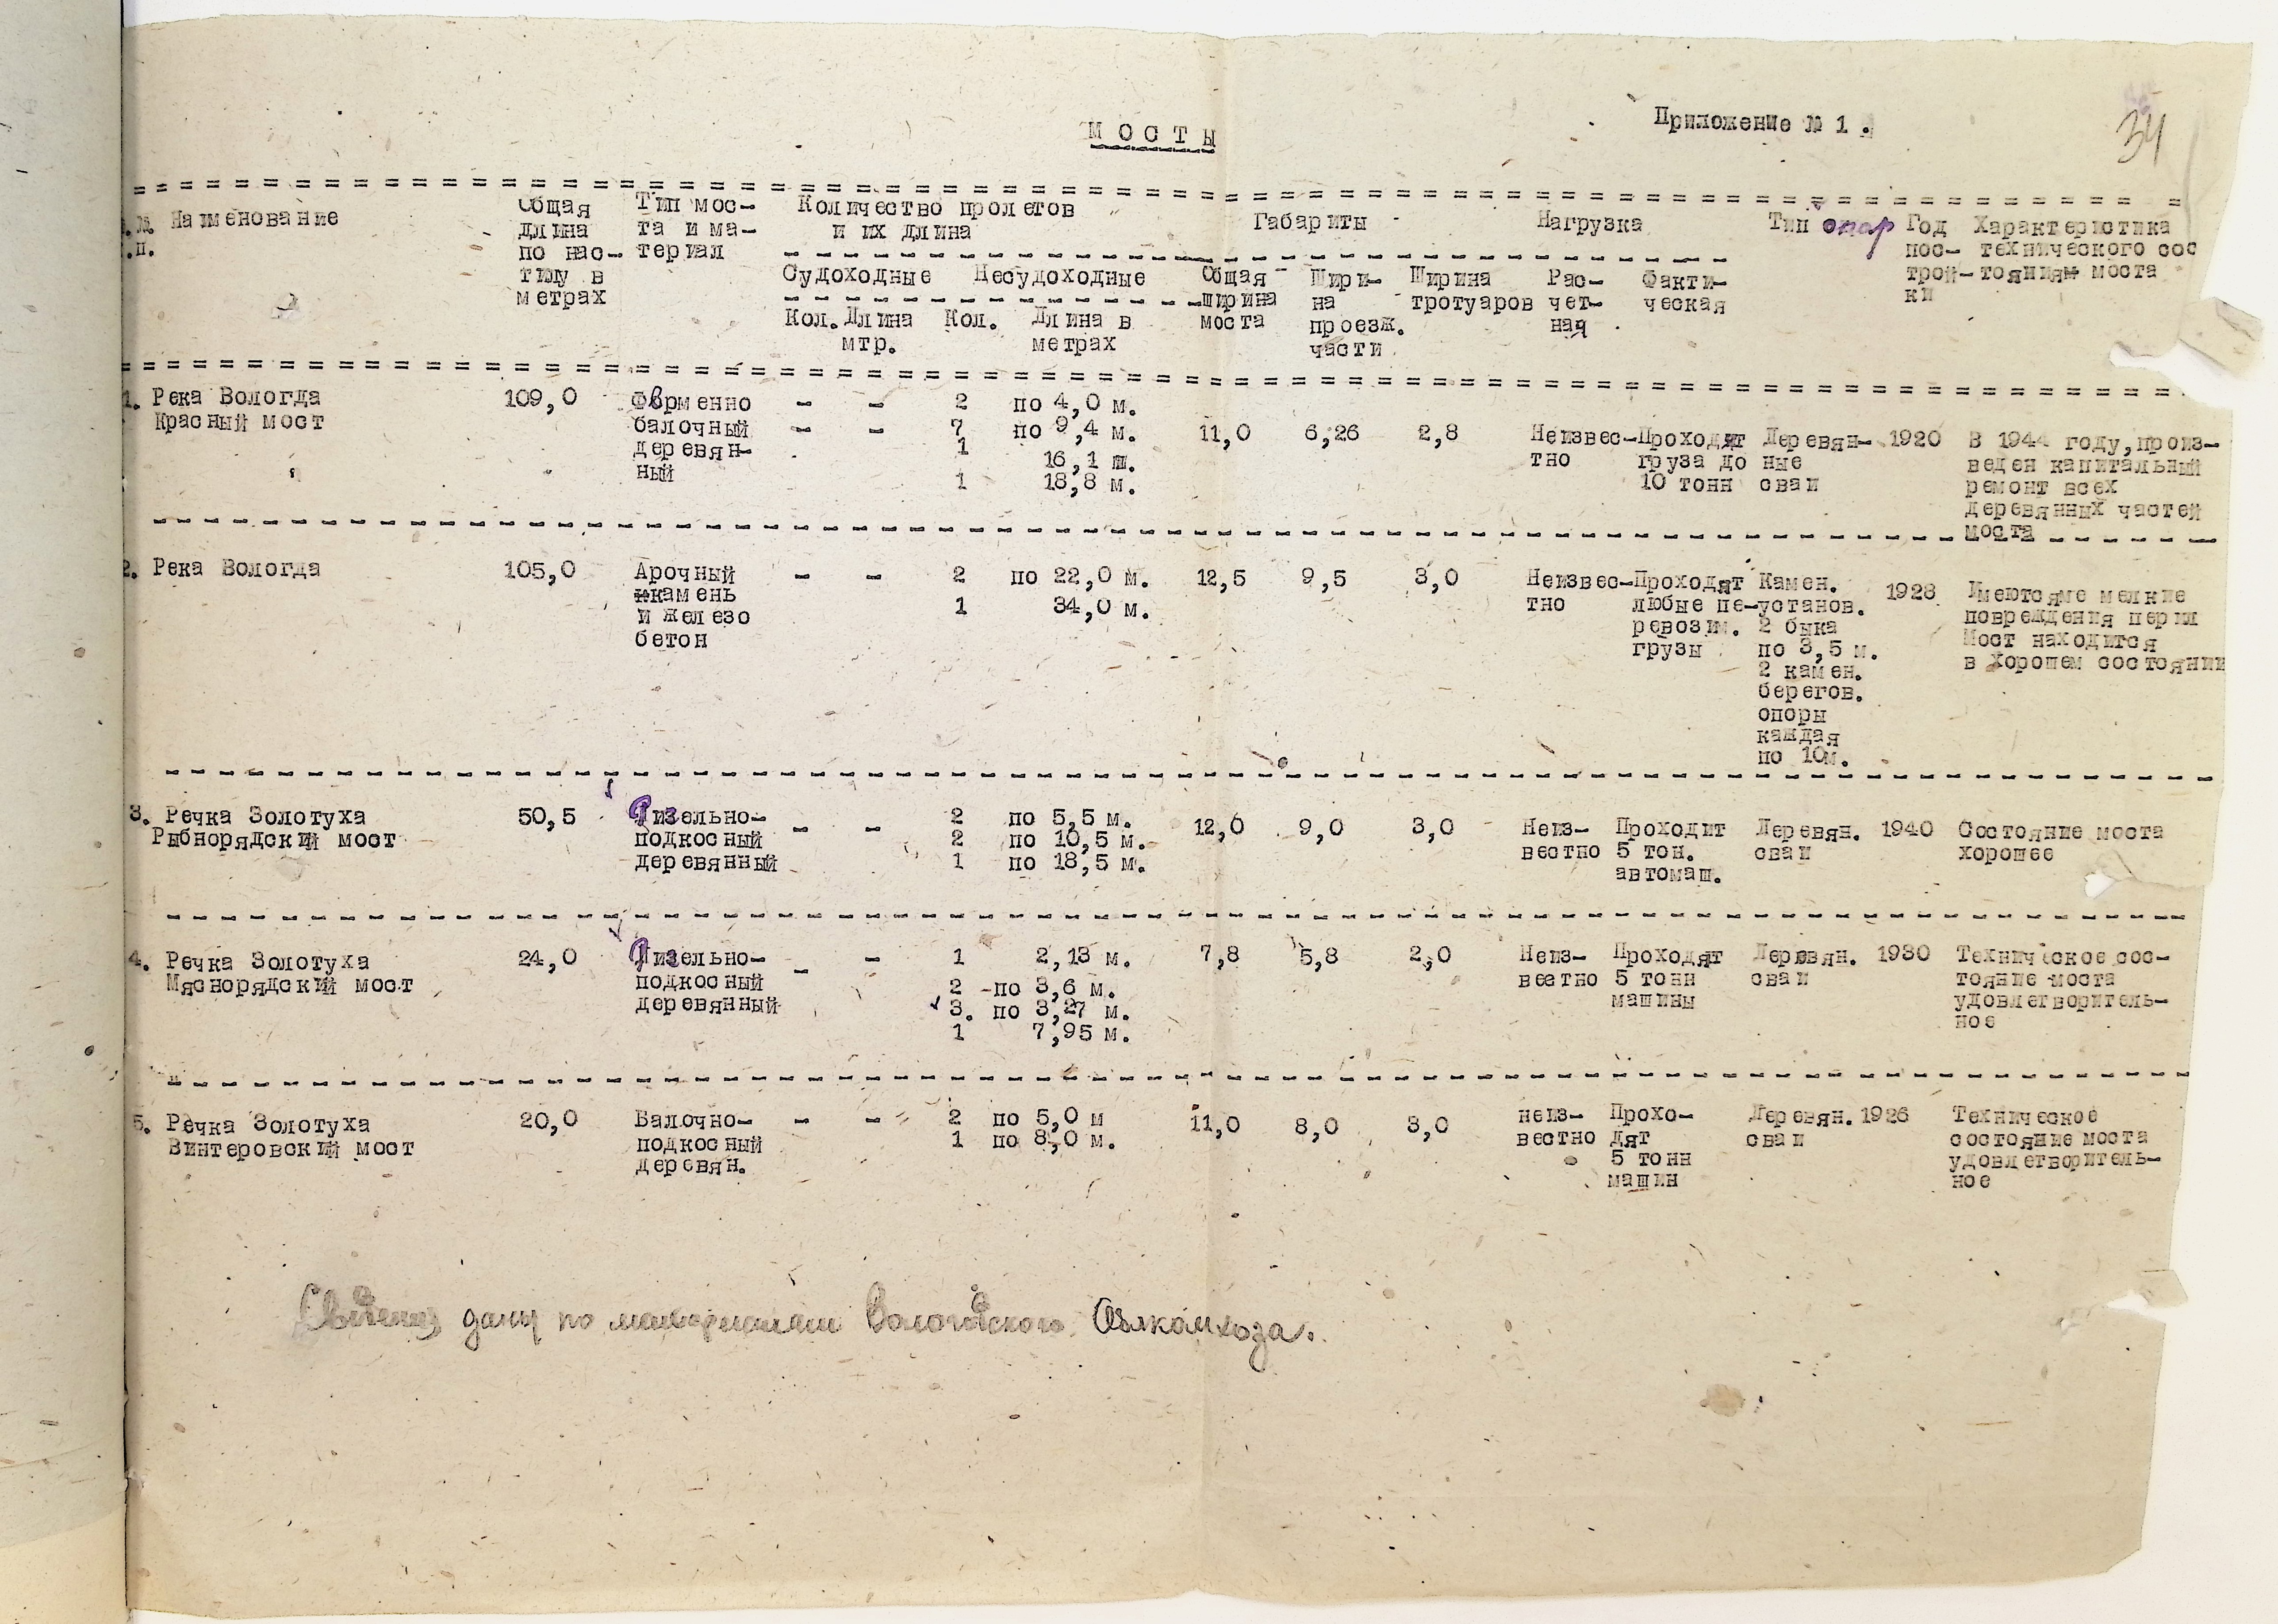 Приложение № 1.
34
М О С Т Ы
№. Наименование Общая Тип мос- Количество пролетов Габариты Нагрузка Тип опар Год Характеристика
.п. длина та и ма- и их длина пос- технического сос
по нас- териал трой- тояниям моста
тилу в Судоходные Несудоходные Общая Шири- Ширина Рас- Факти- ки
метрах ширина на тротуаров чет- ческая
Кол. Длина Кол. Длина в моста проезж. ная
мтр. метрах части
1. Река Вологда 109,0 Форменно - - 2 по 4,0 м.
Красный мост балочный - - 7 по 9,4 м. 11,0 6,26 2,8 Неизвес- Проходят Деревян- 1920 В 1944 году, произ-
деревян- 1 16,1 м. тно груза до ные веден капитальный
ный 1 18,8 м. 10 тонн сваи ремонт всех
деревянных частей
моста
2. Река Вологда 105,0 Арочный - - 2 по 22,0 м. 12,5 9,5 3,0 Неизвес- Проходят Камен. 1928 Имеютсяме мелкие
камень 1 34,0 м. тно любые пе- установ. повреждения перил
и железо ревозим. 2 быка Мост находится
бетон грузы по 3,5 м. в хорошем состоянии
2 камен.
берегов.
опоры
каждая
по 10м.
3. Речка Золотуха 50,5 Ригельно- - - 2 по 5,5 м. 12,0 9,0 3,0 Неиз- Проходит Деревян. 1940 Состояние моста
Рыбнорядский мост подкосный 2 по 10,5 м. вестно 5 тон. сваи хорошее
деревянный 1 по 18,5 м. автомаш.
4. Речка Золотуха 24,0 Ригельно- - - 1 2,13 м. 7,8 5,8 2,0 Неиз- Проходят Деревян. 1930 Техническое сос-
Мяснорядский мост подкосный 2 по 3,6 м. вестно 5 тонн сваи тояние моста
деревянный 3. по 3,27 м. машины удовлетворитель-
1 7,95 м. ное
5. Речка Золотуха 20,0 Балочно- - - 2 по 5,0 м 11,0 8,0 3,0 неиз- Прохо- Деревян. 1926 Техническое
Винтеровский мост подкосный 1 по 8,0 м. вестно дят сваи состояние моста
деревян. 5 тонн удовлетворитель-
машин ное
Сведения даны по материалам Вологодского Облкомхоза.